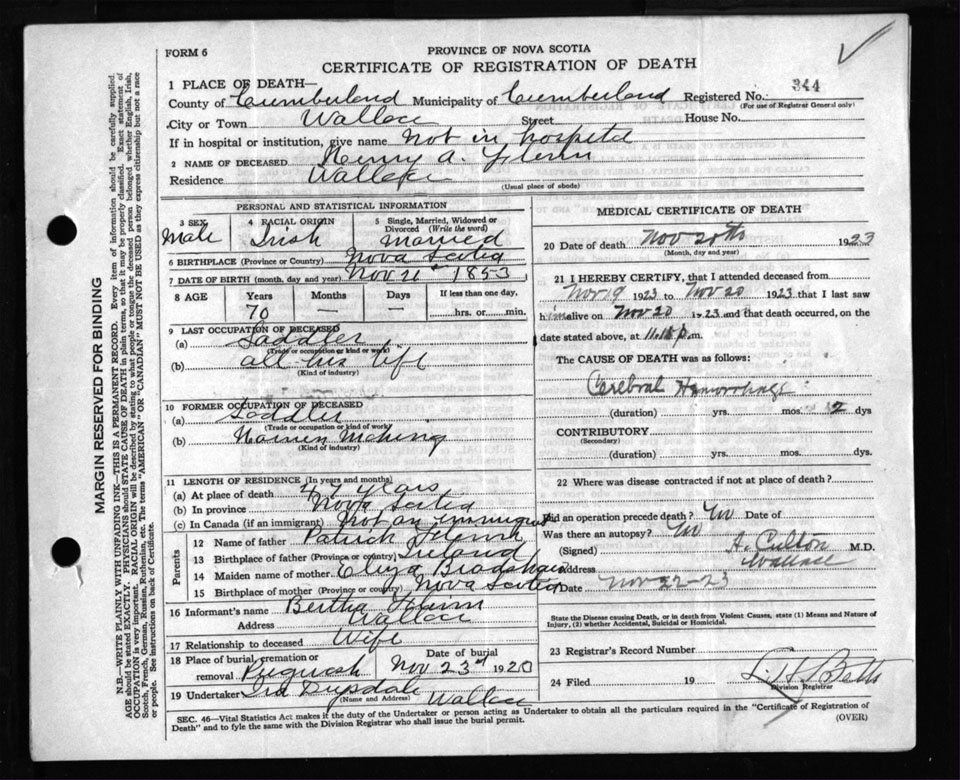 FORM 6
PROVINCE OF NOVA SCOTIA
CERTIFICATE OF REGISTRATION OF DEATH
1 PLACE OF DEATH—
County of Cumberland Municipality of Cumberland Registered No. 344
(For use of Registrar General only)
City or Town Wallace Street House No.
If in hospital or institution, give name Not in hospital
2 NAME OF DECEASED Henry A.
Residence Wallace
(Usual place of abode)
PERSONAL AND STATISTICAL INFORMATION
3 SEX Male
4 RACIAL ORIGIN Irish
5 Single, Married, Widowed or Divorced (Write the word) Married
6 BIRTHPLACE (Province or Country) Nova Scotia
7 DATE OF BIRTH (month, day and year) Nov 21st 1853
8 AGE Years Months Days If less than one day,
70 — — hrs. or min.
9 LAST OCCUPATION OF DECEASED
(a) Saddler
(Trade or occupation or kind of work)
(b) all his life
(Kind of industry)
10 FORMER OCCUPATION OF DECEASED
(a) Saddler
(Trade or occupation or kind of work)
(b) Making
(Kind of industry)
11 LENGTH OF RESIDENCE (In years and months)
(a) At place of death 47 years
(b) In province Nova Scotia
(c) In Canada (if an immigrant) Not an immigrant
Parents
12 Name of father Patrick
13 Birthplace of father (Province or country) Ireland
14 Maiden name of mother Eliza
15 Birthplace of mother (Province or country) Nova Scotia
16 Informant's name Bertha
Address Wallace
17 Relationship to deceased Wife
18 Place of burial, cremation or removal Pugwash
Date of burial Nov 23rd 1920
19 Undertaker Ira Wallace
(Name and Address)
MEDICAL CERTIFICATE OF DEATH
20 Date of death Nov 20th 1923
(Month, day and year)
21 I HEREBY CERTIFY, that I attended deceased from
Nov 19 1923 to Nov 20 1923 that I last saw
him alive on Nov 20 1923 and that death occurred, on the
date stated above, at 11.15 p.m.
The CAUSE OF DEATH was as follows:
Cerebral Hemorrhage
(duration) yrs. mos. 2 dys
CONTRIBUTORY
(Secondary)
(duration) yrs. mos. dys.
22 Where was disease contracted if not at place of death?
Did an operation precede death? Date of
Was there an autopsy?
(Signed) A. M.D.
Address Wallace
Date Nov 22-23
State the Disease causing Death, or in death from Violent Causes, state (1) Means and Nature of
Injury, (2) whether Accidental, Suicidal or Homicidal.
23 Registrar's Record Number
24 Filed 19
Division Registrar
SEC. 46—Vital Statistics Act makes it the duty of the Undertaker or person acting as Undertaker to obtain all the particulars required in the "Certificate of Registration of
Death" and to fyle the same with the Division Registrar who shall issue the burial permit.
(OVER)
MARGIN RESERVED FOR BINDING
N.B.—WRITE PLAINLY WITH UNFADING INK—THIS IS A PERMANENT RECORD. Every item of information should be carefully supplied.
AGE should be stated EXACTLY. PHYSICIANS should STATE CAUSE OF DEATH in plain terms, so that it may be properly classified. Exact statement of
OCCUPATION is very important. RACIAL ORIGIN will be described by stating to what people or tongue the deceased person belonged whether English, Irish,
Scotch, French, German, Russian, Ruthenian, etc. The terms "AMERICAN" OR "CANADIAN" MUST NOT BE USED as they express citizenship but not a race
or people. See instructions on back of Certificate.